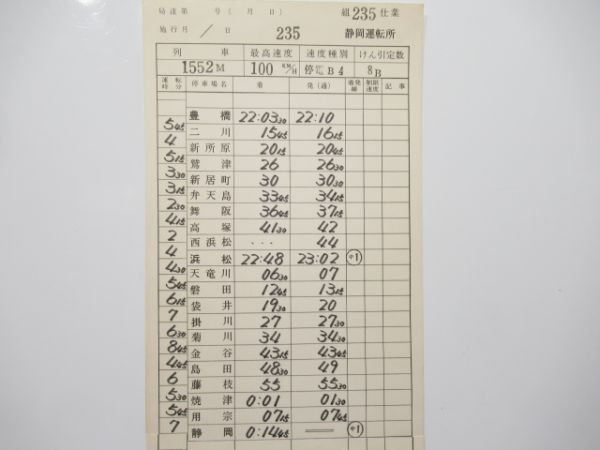 局達第 号(月 日) 組 235 仕業
施行月 / 日 235 静岡運転所
列 車 最高速度 速度種別 けん引定数
1552M 100 KM/H 停電B4 8B
運転時分 停車場名 着 発(通) 着発線 制限速度 記事
豊橋 22:03 30 22:10
5 45
二川 15 45 16 15
4
新所原 20 15 20 45
5 15
鷲津 26 26 30
3 30
新居町 30 30 30
3 15
弁天島 33 45 34 15
2 30
舞阪 36 45 37 15
4 15
高塚 41 30 42
2
西浜松 ... 44
4
浜松 22:48 23:02
4 30
天竜川 06 30 07
5 45
磐田 12 45 13 15
6 15
袋井 19 30 20
7
掛川 27 27 30
6 30
菊川 34 34 30
8 45
金谷 43 15 43 45
4 45
島田 48 30 49
6
藤枝 55 55 30
5 30
焼津 0:01 01 30
5 45
用宗 07 15 07 45
7
静岡 0:14 45